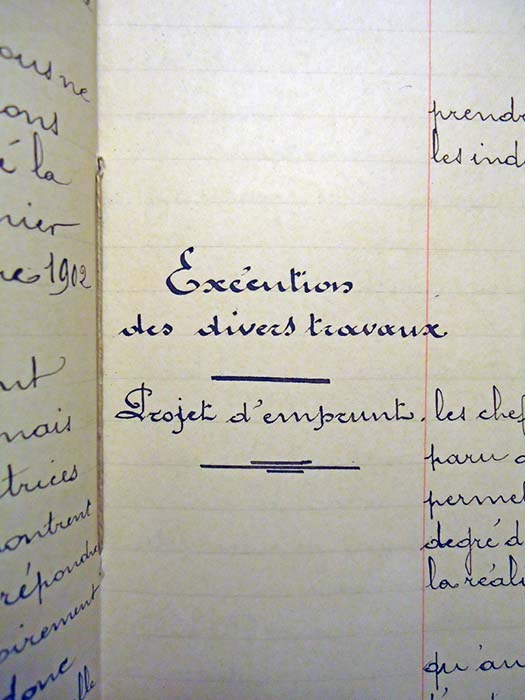 ons
é la
nier
1902
nt
mais
trices
ontrent
répondre
oirement
donc
lle
Exécution
des divers travaux
Projet d'emprunt.
prendr
les ind
les chef
paru d
permet
degré d
la réali
qu'au